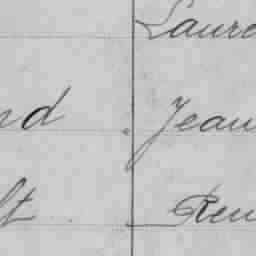 Laur
nd Jean
lt Ren